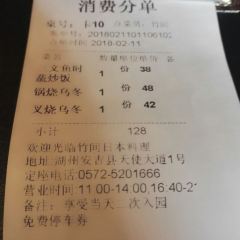 消费分单
桌号:卡10 点菜员:竹间
账单号:2018021101106102
点单时间 2018-02-11
菜名 数量单位单价 备
三文鱼时 1 份 38
蔬炒饭
锅烧乌冬 1 份 42
叉烧乌冬 1 份 48
小计 128
欢迎光临竹间日本料理
地址:湖州安吉县天使大道1号
定座电话:0572-5201666
营业时间:11:00-14:00,16:40-21
备注:享受当天二次入园
免费停车券